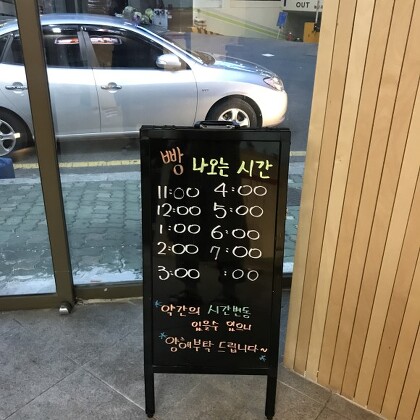 OUT
빵 나오는 시간
11:00 4:00
12:00 5:00
1:00 6:00
2:00 7:00
3:00 :00
약간의 시간변동
있을수 있으니
양해부탁 드립니다~